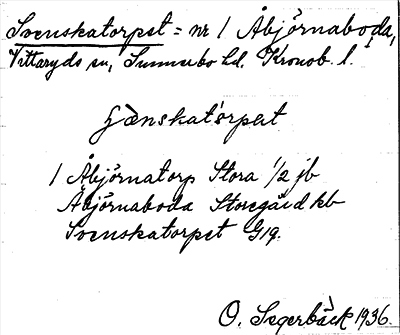 Svenskatorpet = nr 1 Åbjörnaboda,
Vittaryds sn, Sunnerbo hd. Kronob. l.
1 Åbjörnatorp Stora 1/2 jb
Åbjörnaboda Storegård kb
Svenskatorpet G19.
O. Segerbäck 1936.